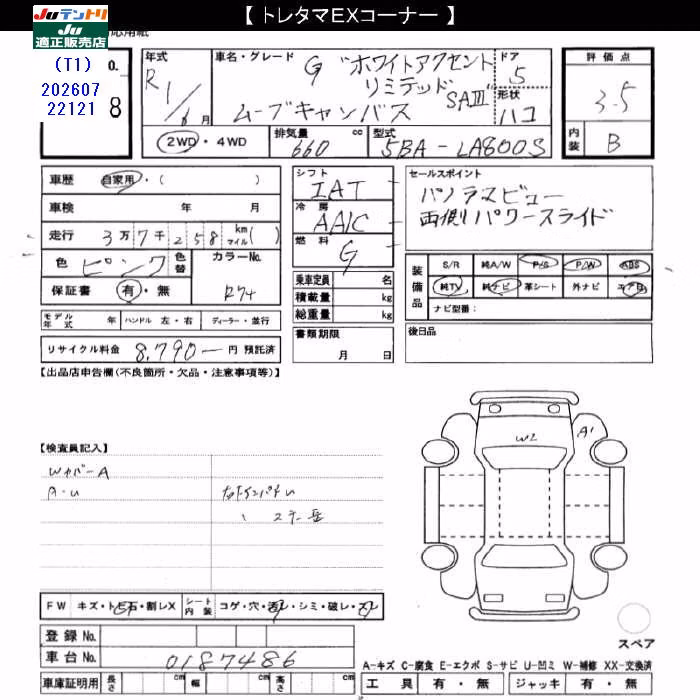 【 トレタマEXコーナー 】
Ju テントリ
Ju
適正販売店
応用紙
(T1)
202607
22121
o.
8
年式
R1/6月
車名・グレード
G "ホワイトアクセント
リミテッド
SAⅢ"
ムーブキャンバス
ドア
5
形状
ハコ
評価点
3.5
内装
B
2WD・4WD
排気量 cc
660
型式
5BA-LA800S
車歴 自家用・( )
車検 年 月
走行 3万7千258 km マイル( )
色 ピンク 色替 カラーNo.
R74
保証書 有・無
モデル年式 年 ハンドル 左・右 ディーラー・並行
リサイクル料金 8,790- 円 預託済
シフト
IAT
冷房
AAC
燃料
G
乗車定員 名
積載量 kg
総重量 kg
書類期限
月 日
セールスポイント
パノラマビュー
両側パワースライド
装備品 S/R 純A/W P/S P/W ABS
純TV 純ナビ 革シート 外ナビ エアB
ナビ型番:
後日品
【出品店申告欄(不良箇所・欠品・注意事項等)】
【検査員記入】
WカバーA
A・U
W2
A1
FW キズ・トビ石・割レX シート内装 コゲ・穴・汚レ・シミ・破レ・スレ
登録No.
車台No. 0187486
車庫証明用 長さ cm 幅 cm 高さ cm
スペア
A-キズ C-腐食 E-エクボ S-サビ U-凹ミ W-補修 XX-交換済
工具 有・無 ジャッキ 有・無